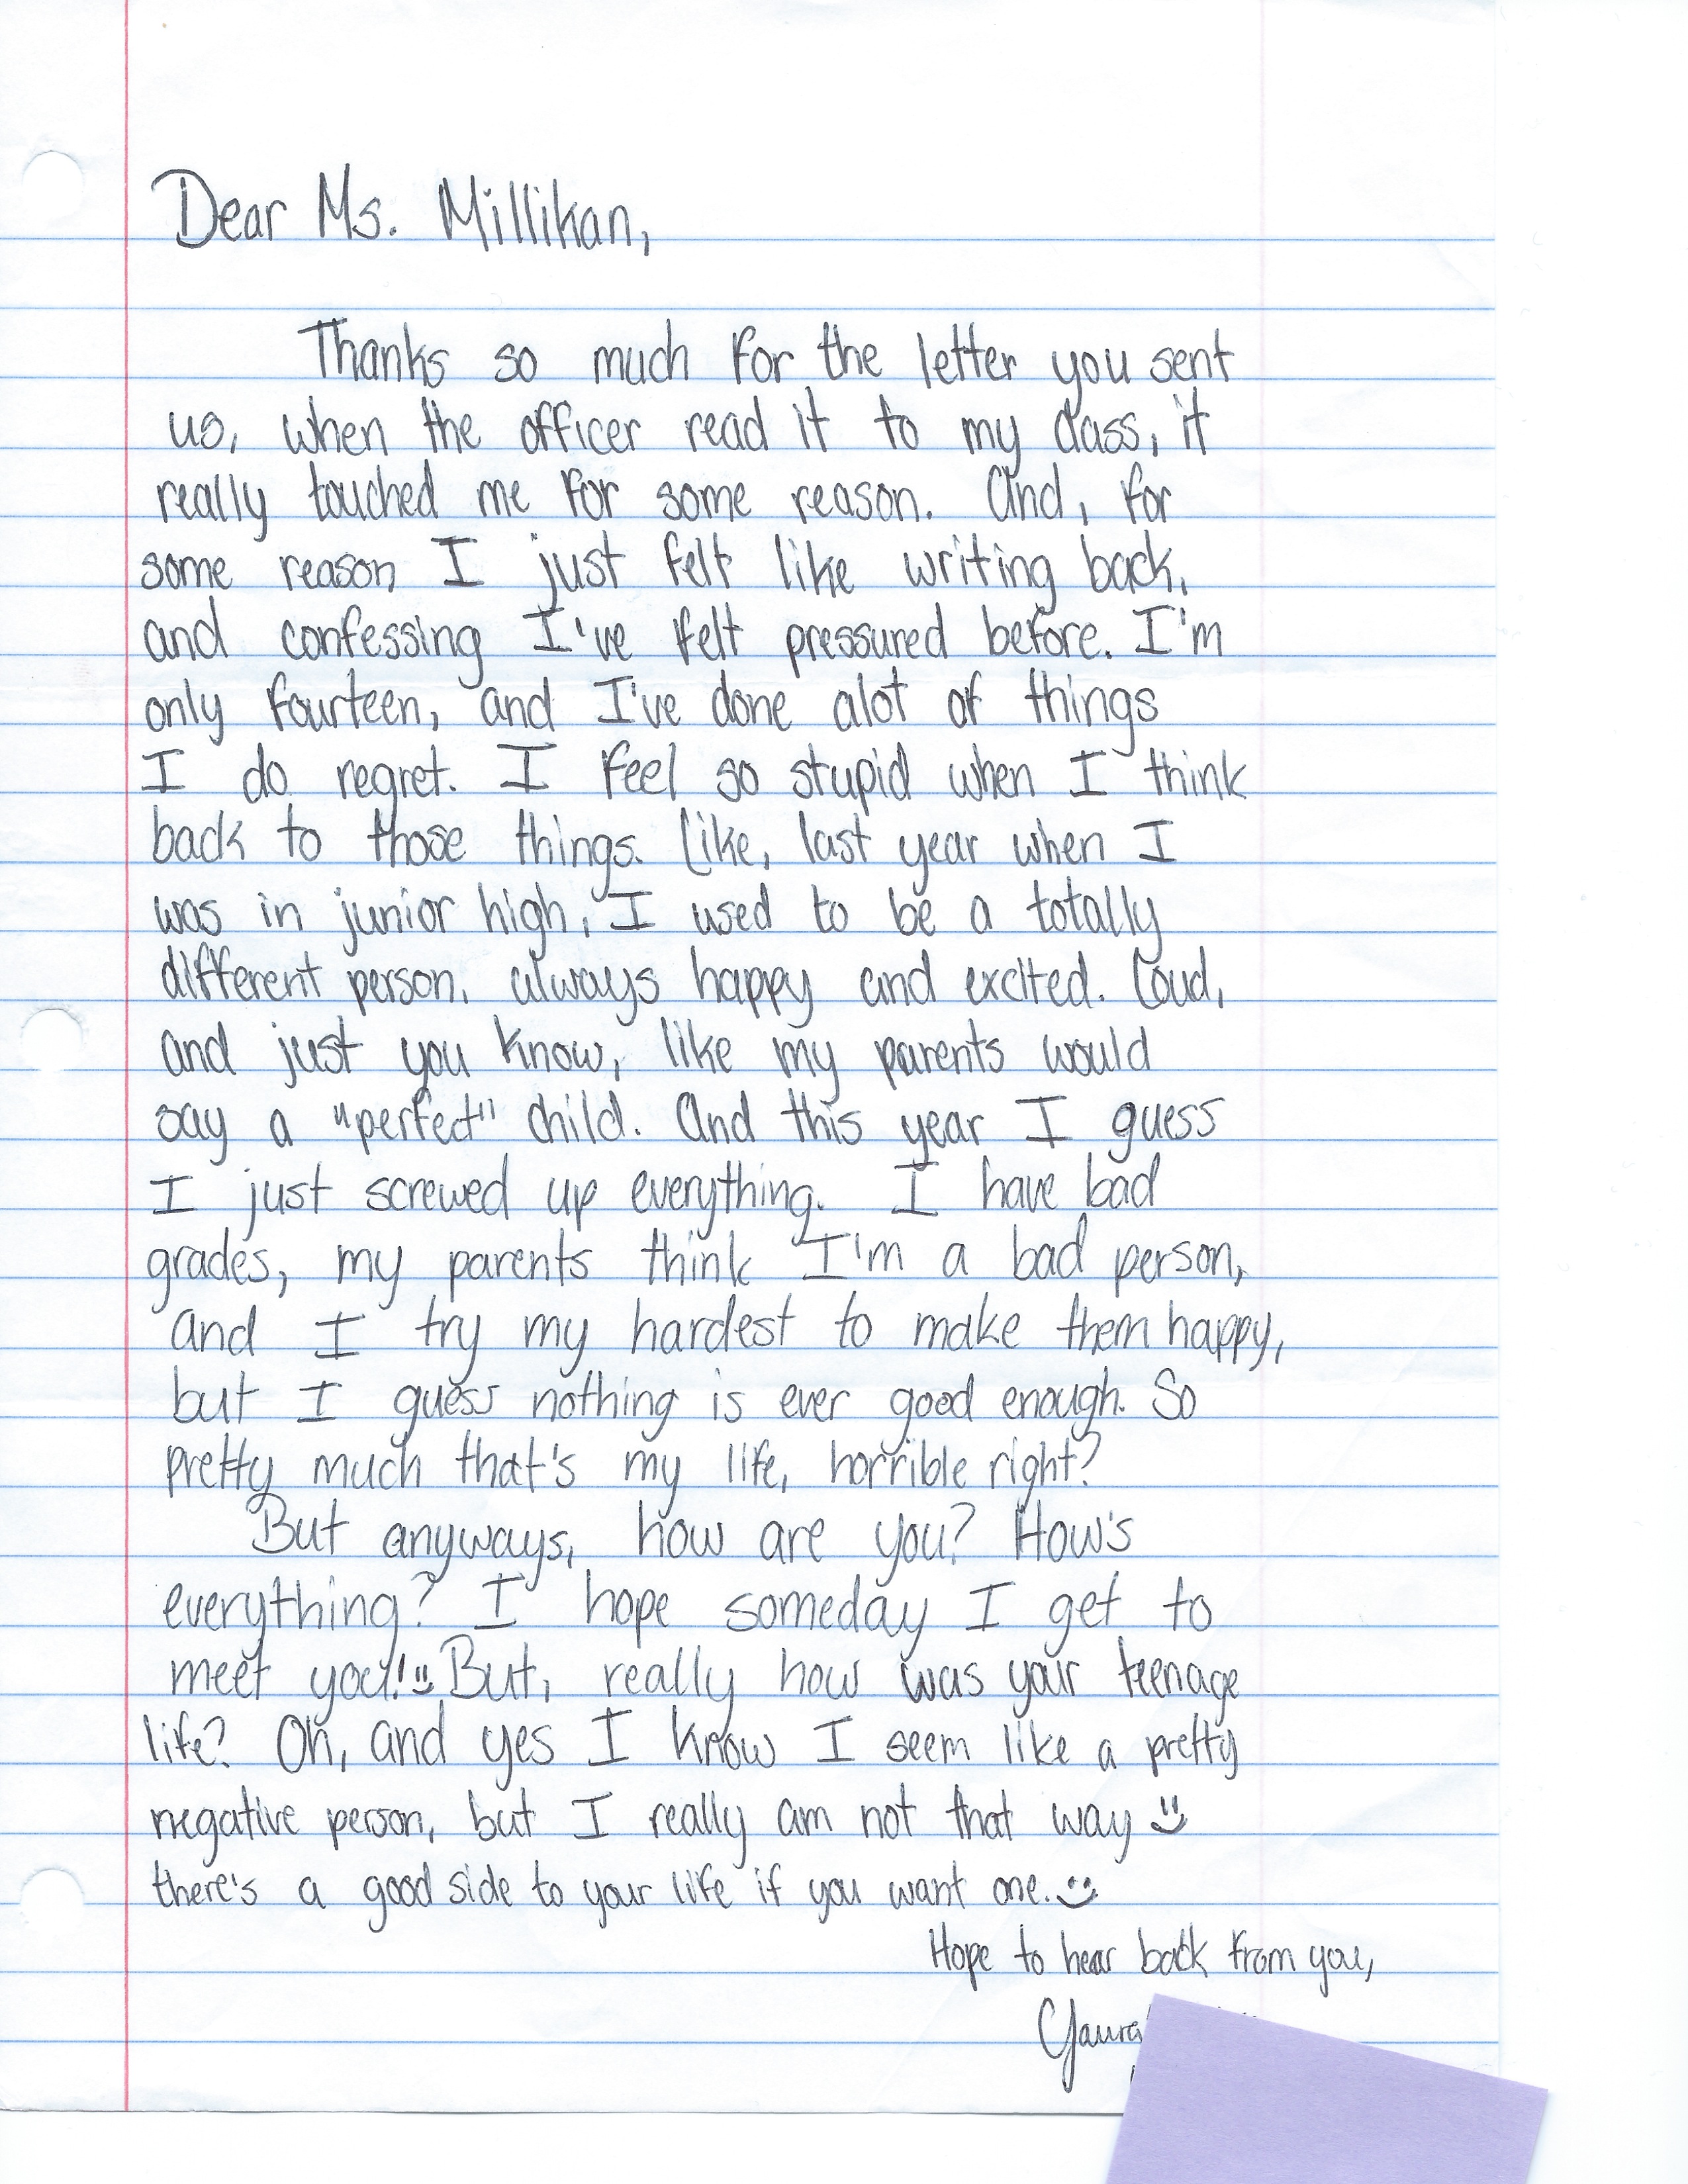 Dear Ms. Millikan,
Thanks so much for the letter you sent
us, when the officer read it to my class, it
really touched me for some reason. And, for
some reason I just felt like writing back,
and confessing I've felt pressured before. I'm
only fourteen, and I've done alot of things
I do regret. I feel so stupid when I think
back to those things. Like, last year when I
was in junior high, I used to be a totally
different person, always happy and excited. Loud,
and just you know, like my parents would
say a "perfect" child. And this year I guess
I just screwed up everything. I have bad
grades, my parents think I'm a bad person,
and I try my hardest to make them happy,
but I guess nothing is ever good enough. So
pretty much that's my life, horrible right?
But anyways, how are you? How's
everything? I hope someday I get to
meet you! But, really how was your teenage
life? Oh, and yes I know I seem like a pretty
negative person, but I really am not that way
there's a good side to your life if you want one.
Hope to hear back from you,